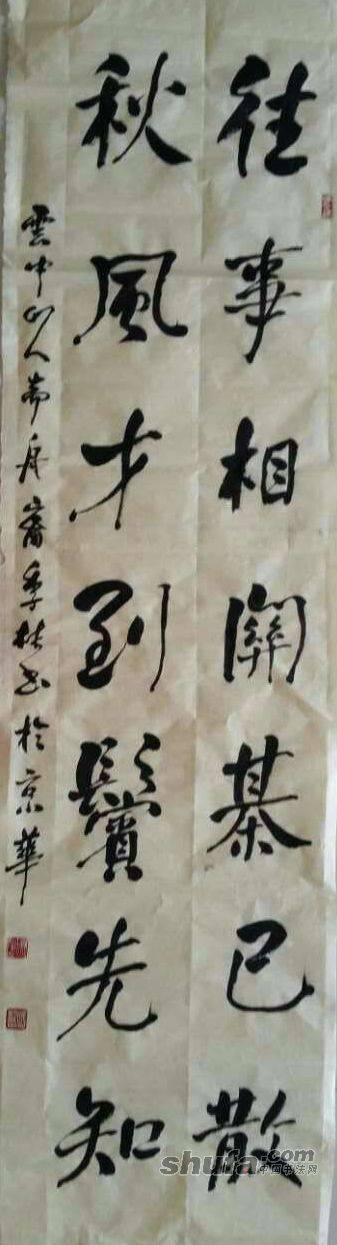 往事相關棊已散
秋風才到鬢先知
雲中山人帝堯裔季林书於京華
shufa.com
中国书法网